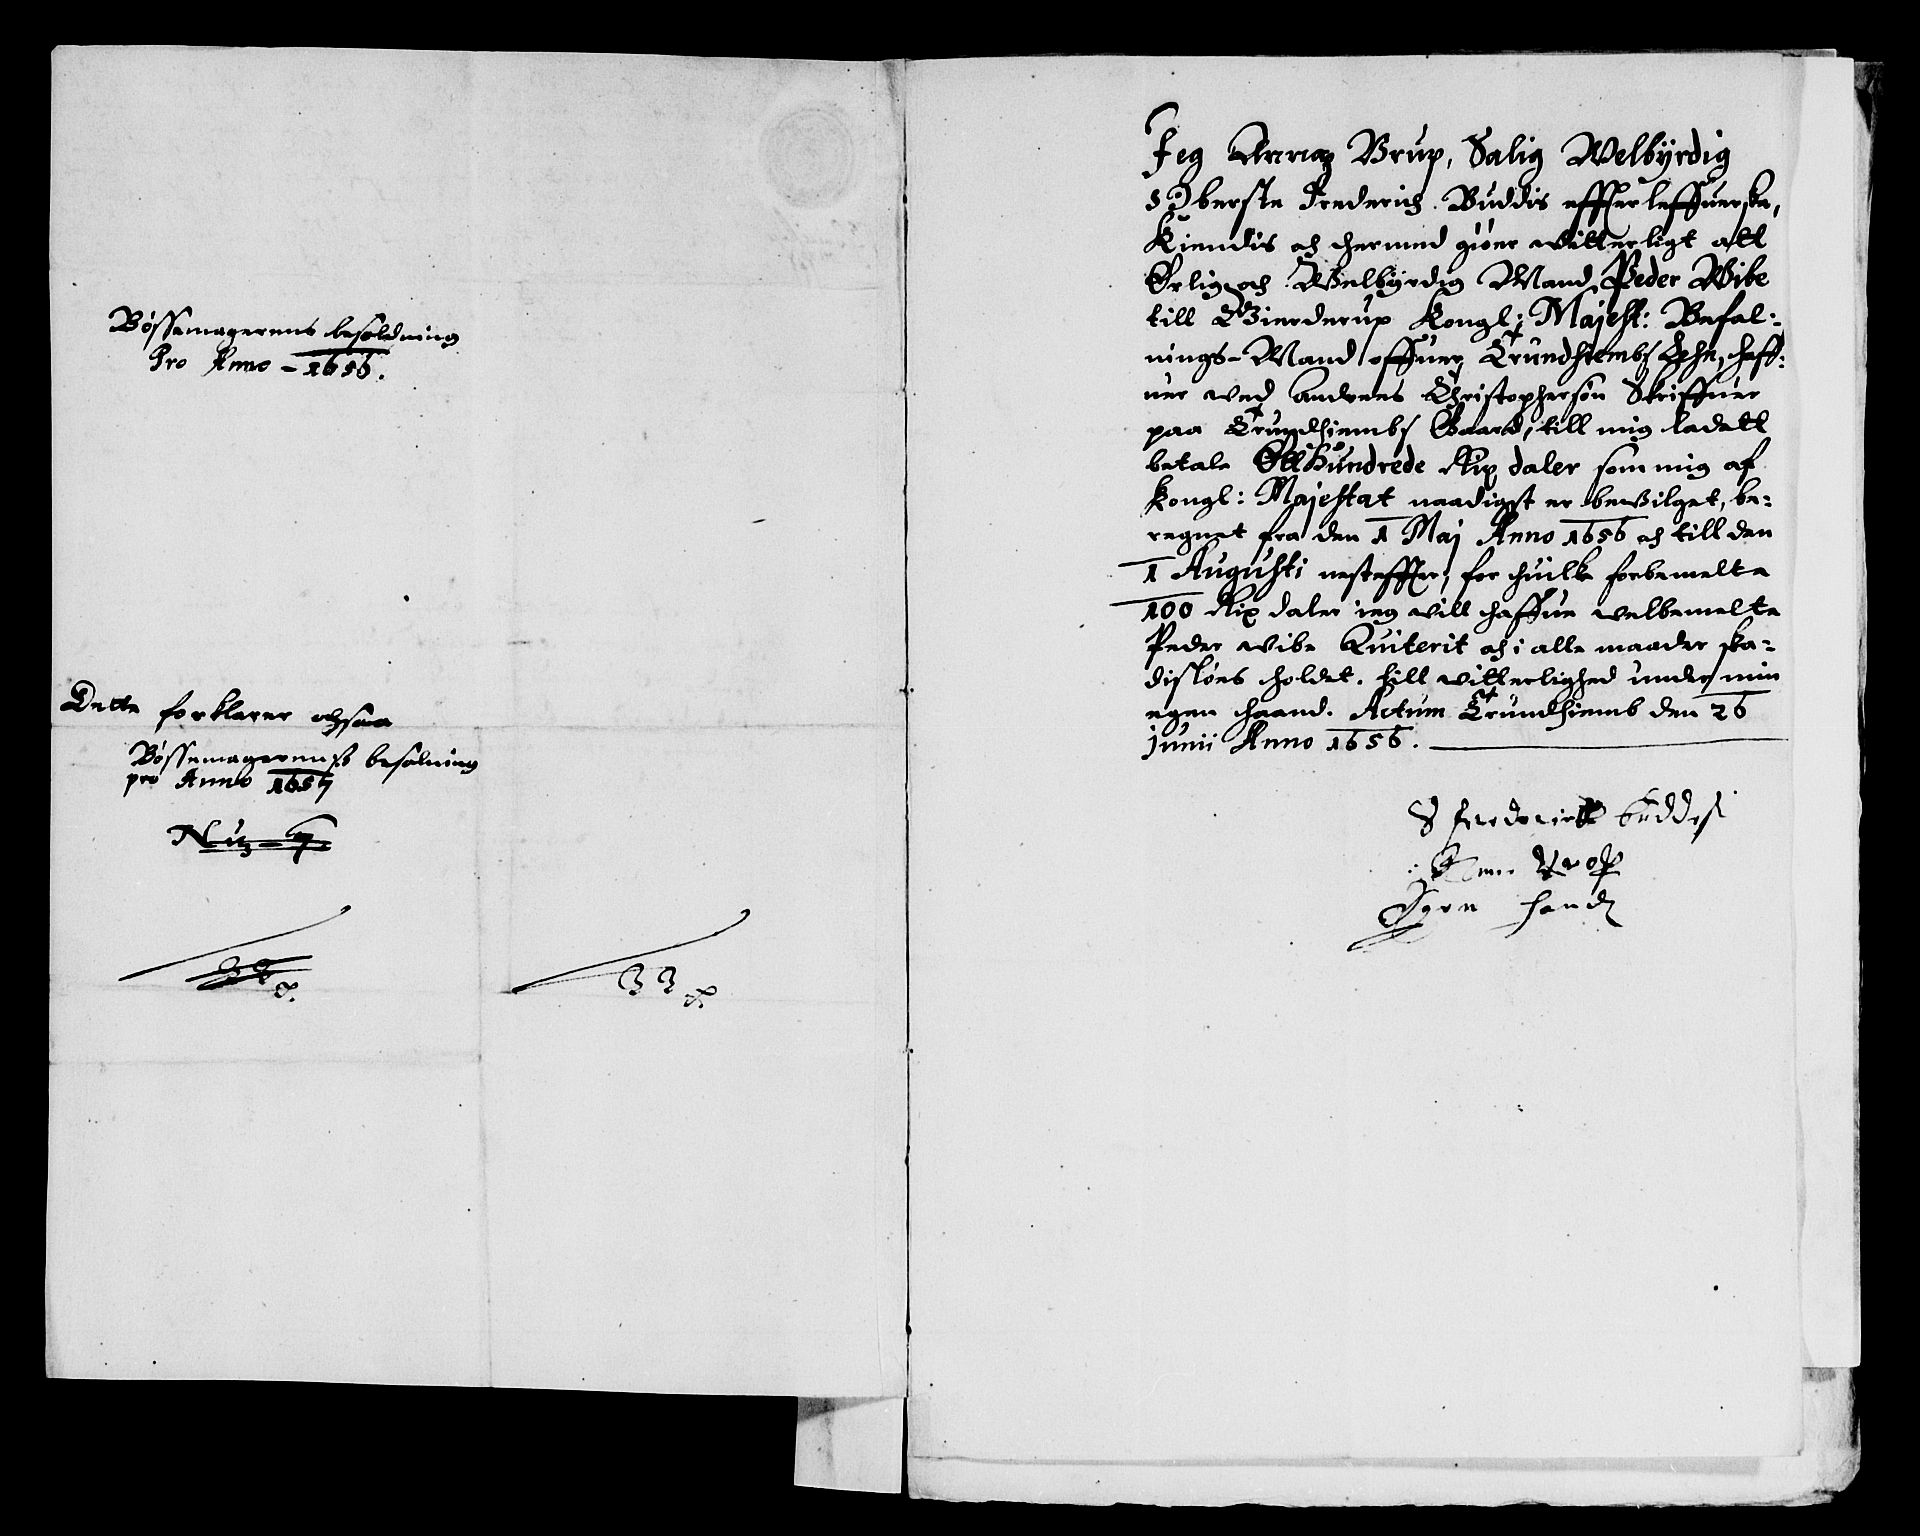 Bøssemagerens besoldning
Pro Anno - 1656.
Dette forklarer ochsaa
Bøssemagerens besolning
pro Anno 1657
No 7
33
33
Jeg Anna Vrup, Salig Welbÿrdig
Oberste Frederich Buddis effterleffuerske,
Kiendis och hermed giöer witterligt att
Ærlig och Welbÿrdig Mand, Peder Wibe
till Gierderup Kongl: Majest: Befal:
nings-Mand offuer Trundhiembs Lehn, haff:
uer wed Andrees Christophersøn Skriffuer
paa Trundhiembs Gaard, till mig ladett
betale Ett Hundrede Rix daler som mig af
Kongl: Majestat naadigst er bewilget, be-
regnet fra den 1 Maj Anno 1656 och till den
1 Augusti nesteffter, for huilke forbemelte
100 Rix daler ieg will haffue welbemelte
Peder Wibe Quiterit och i alle maader ska-
disløes holdet. till witterlighed under min
egen haand. Actum Trundhiemb den 26
Junii Anno 1656.
S Frederick Buddes
Anne Vrop
Egen hand